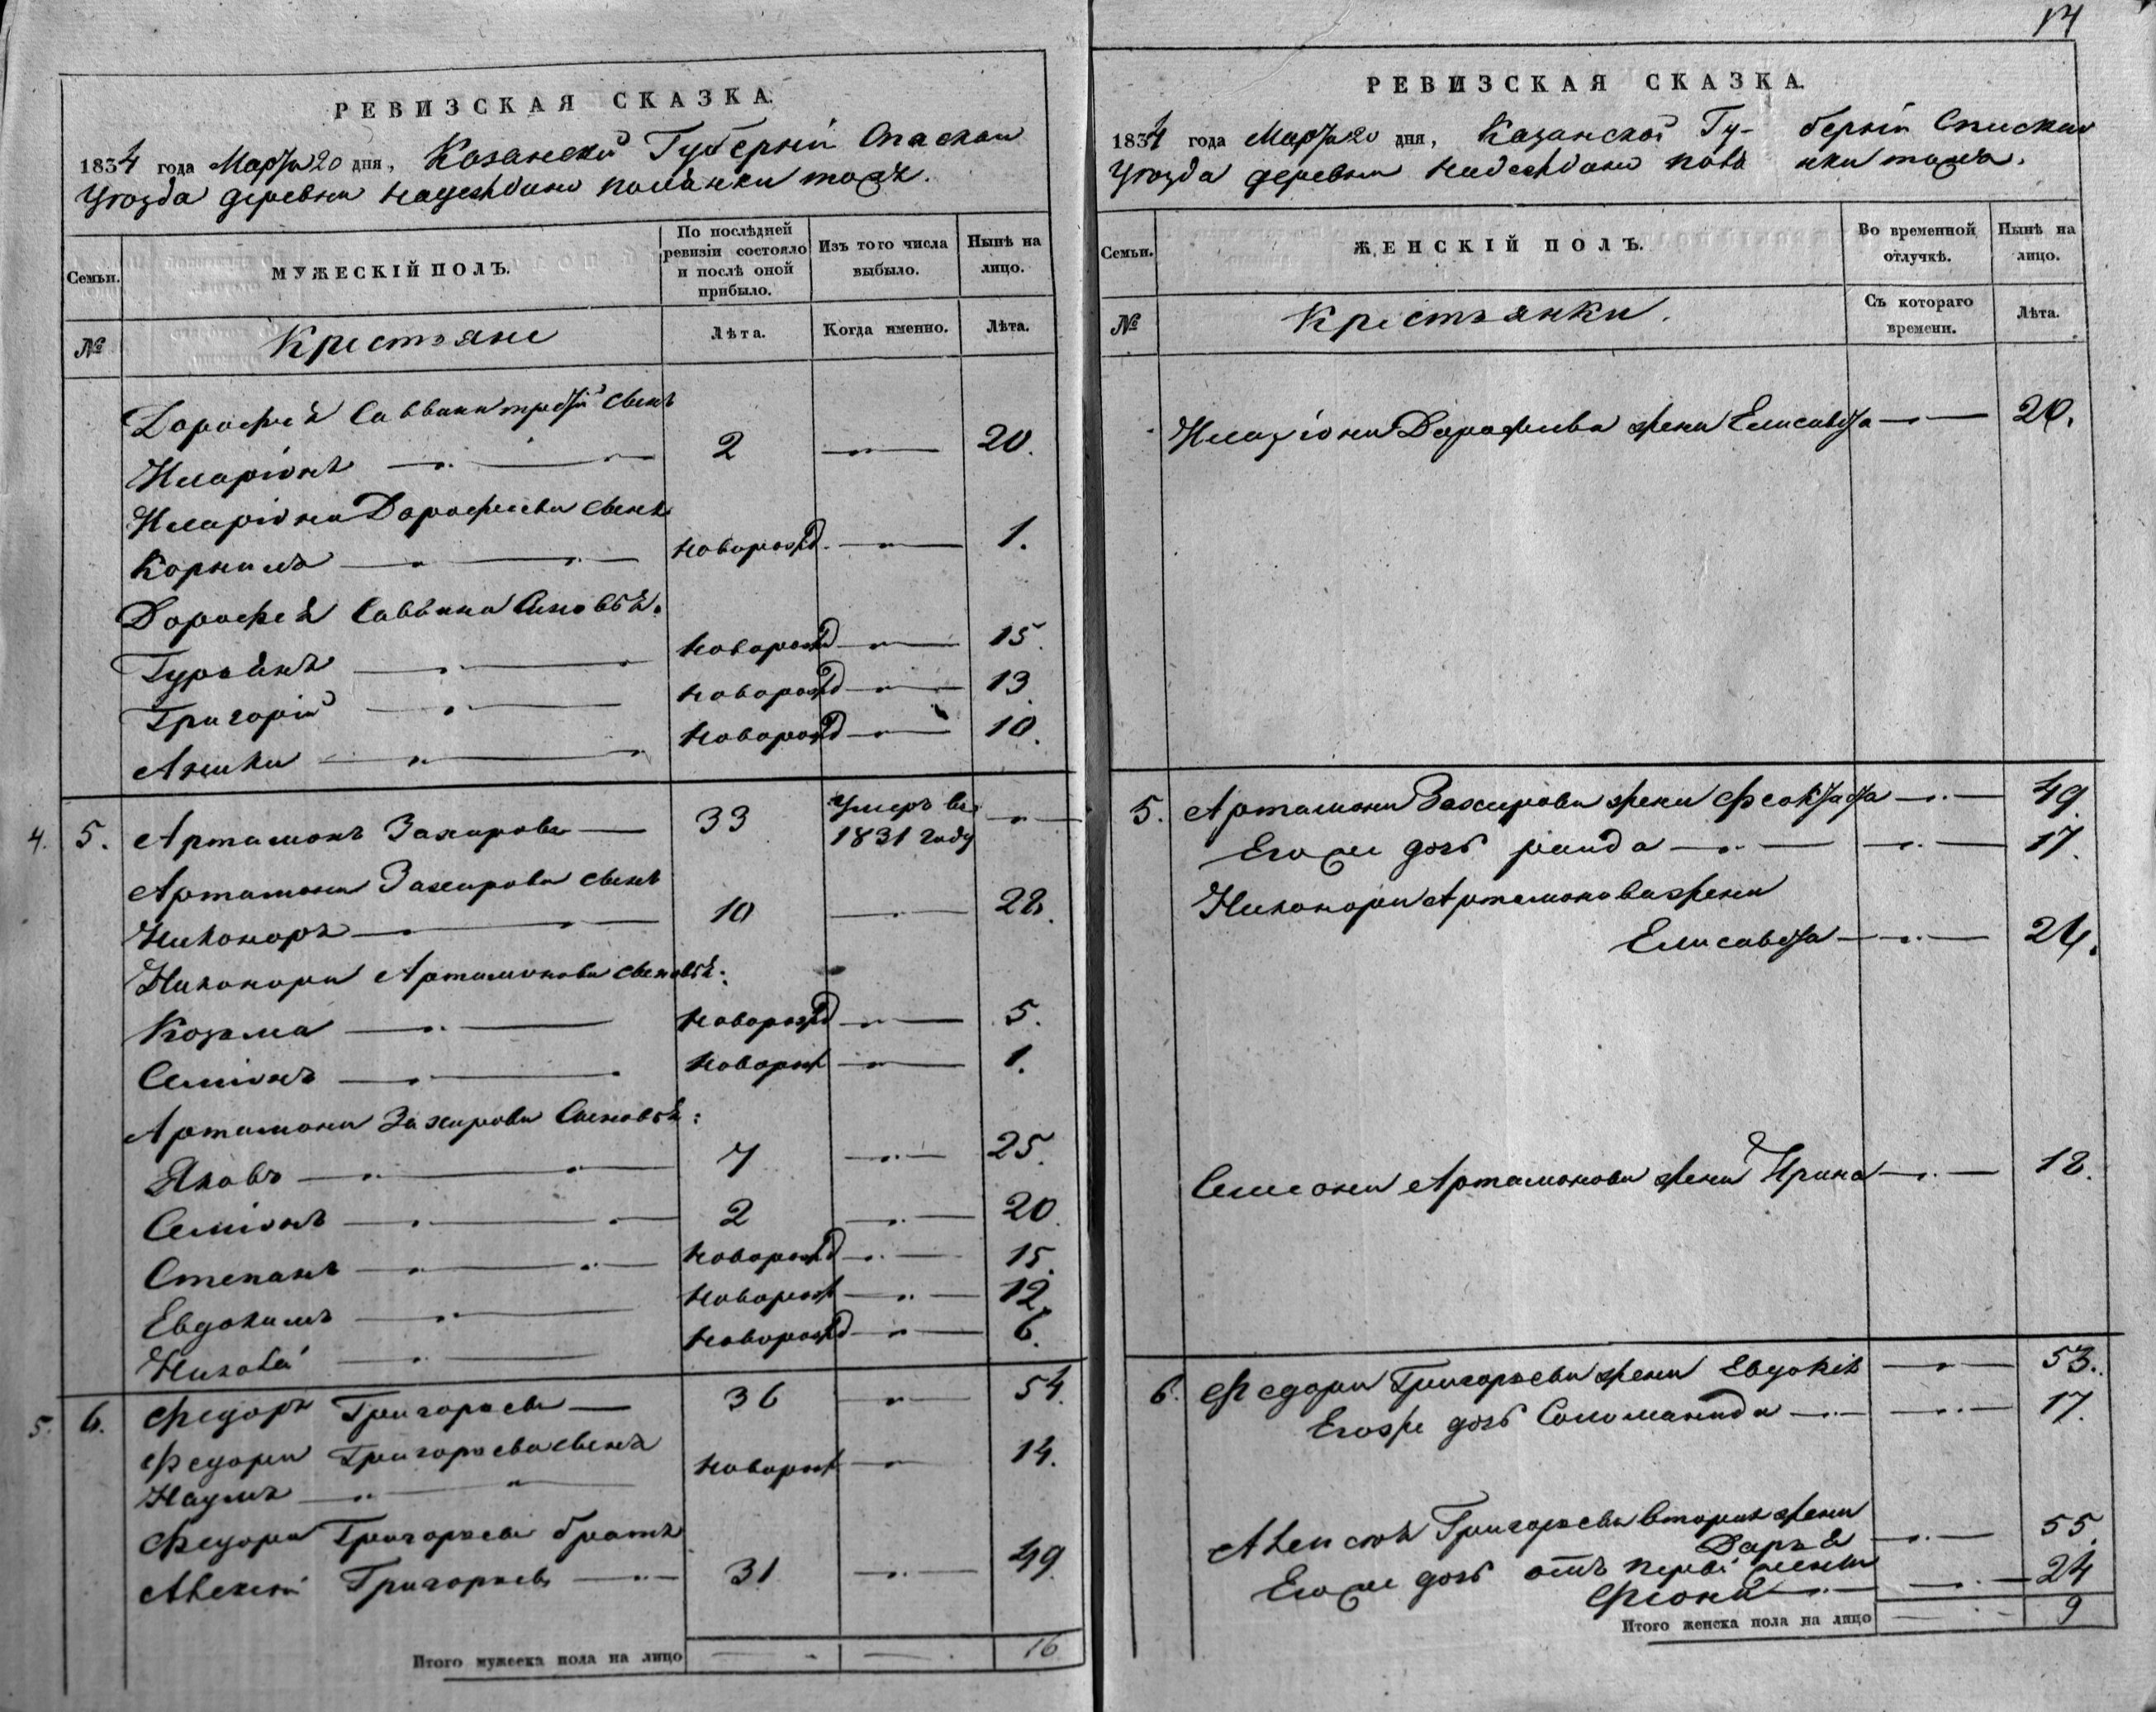 14
РЕВИЗСКАЯ СКАЗКА
1834 года Марта 20 дня, Казанской Губерніи Спаской
Уезда деревни тожъ.
Семьи. МУЖЕСКІЙ ПОЛЪ. По послѣдней ревизіи состояло и послѣ оной прибыло. Изъ того числа выбыло. Нынѣ на лицо.
№ Крестьяне Лѣта. Когда именно. Лѣта.
Дорофея Саввина третій сынъ
Иларіонъ 2 20.
Иларіона Дорофеева сынъ
Корнилъ новорожд. 1.
Дорофея Саввина Сыновья.
Гурьянъ новорожд 15.
Григорій новорожд 13
Аника новорожд 10.
4. 5. Артамонъ Захаровъ 33 Умеръ въ 1831 году
Артамона Захарова сынъ
Никоноръ 10 28.
Никонора Артамонова сыновья:
Козьма новорожд 5.
Семіонъ новорож 1.
Артамона Захарова Сыновья:
Яковъ 7 25.
Семіонъ 2 20
Степанъ новорожд 15.
Евдокимъ новорож 12
новорожд 6.
5. 6. Федоръ Григорьевъ 36 54.
Федора Григорьева сынъ
Наумъ новорож 14.
Федора Григорьева братъ
Алексей Григорьевъ 31 49
Итого мужеска пола на лицо 16
РЕВИЗСКАЯ СКАЗКА.
1834 года Марта 20 дня, Казанской Гу- берніи Спиской
Уезда деревни тожъ.
Семьи. ЖЕНСКІЙ ПОЛЪ. Во временной отлучкѣ. Нынѣ на лицо.
№ Крестьянки. Съ котораго времени. Лѣта.
Иларіона Дорофеева жена Елисавета 20.
5. Артамона Захарова жена Феоктиста 49
Егоже дочь 17.
Никонора Артамонова жена
Елисавета 24.
Семиона Артамонова жена Ирина 18.
6. Федора Григорьева жена Евдокія 53.
Егоже дочь Соломанида 17.
Алексея Григорьева вторая жена
Дарья 55
Егоже дочь отъ первой жены
24
Итого женска пола на лицо 9